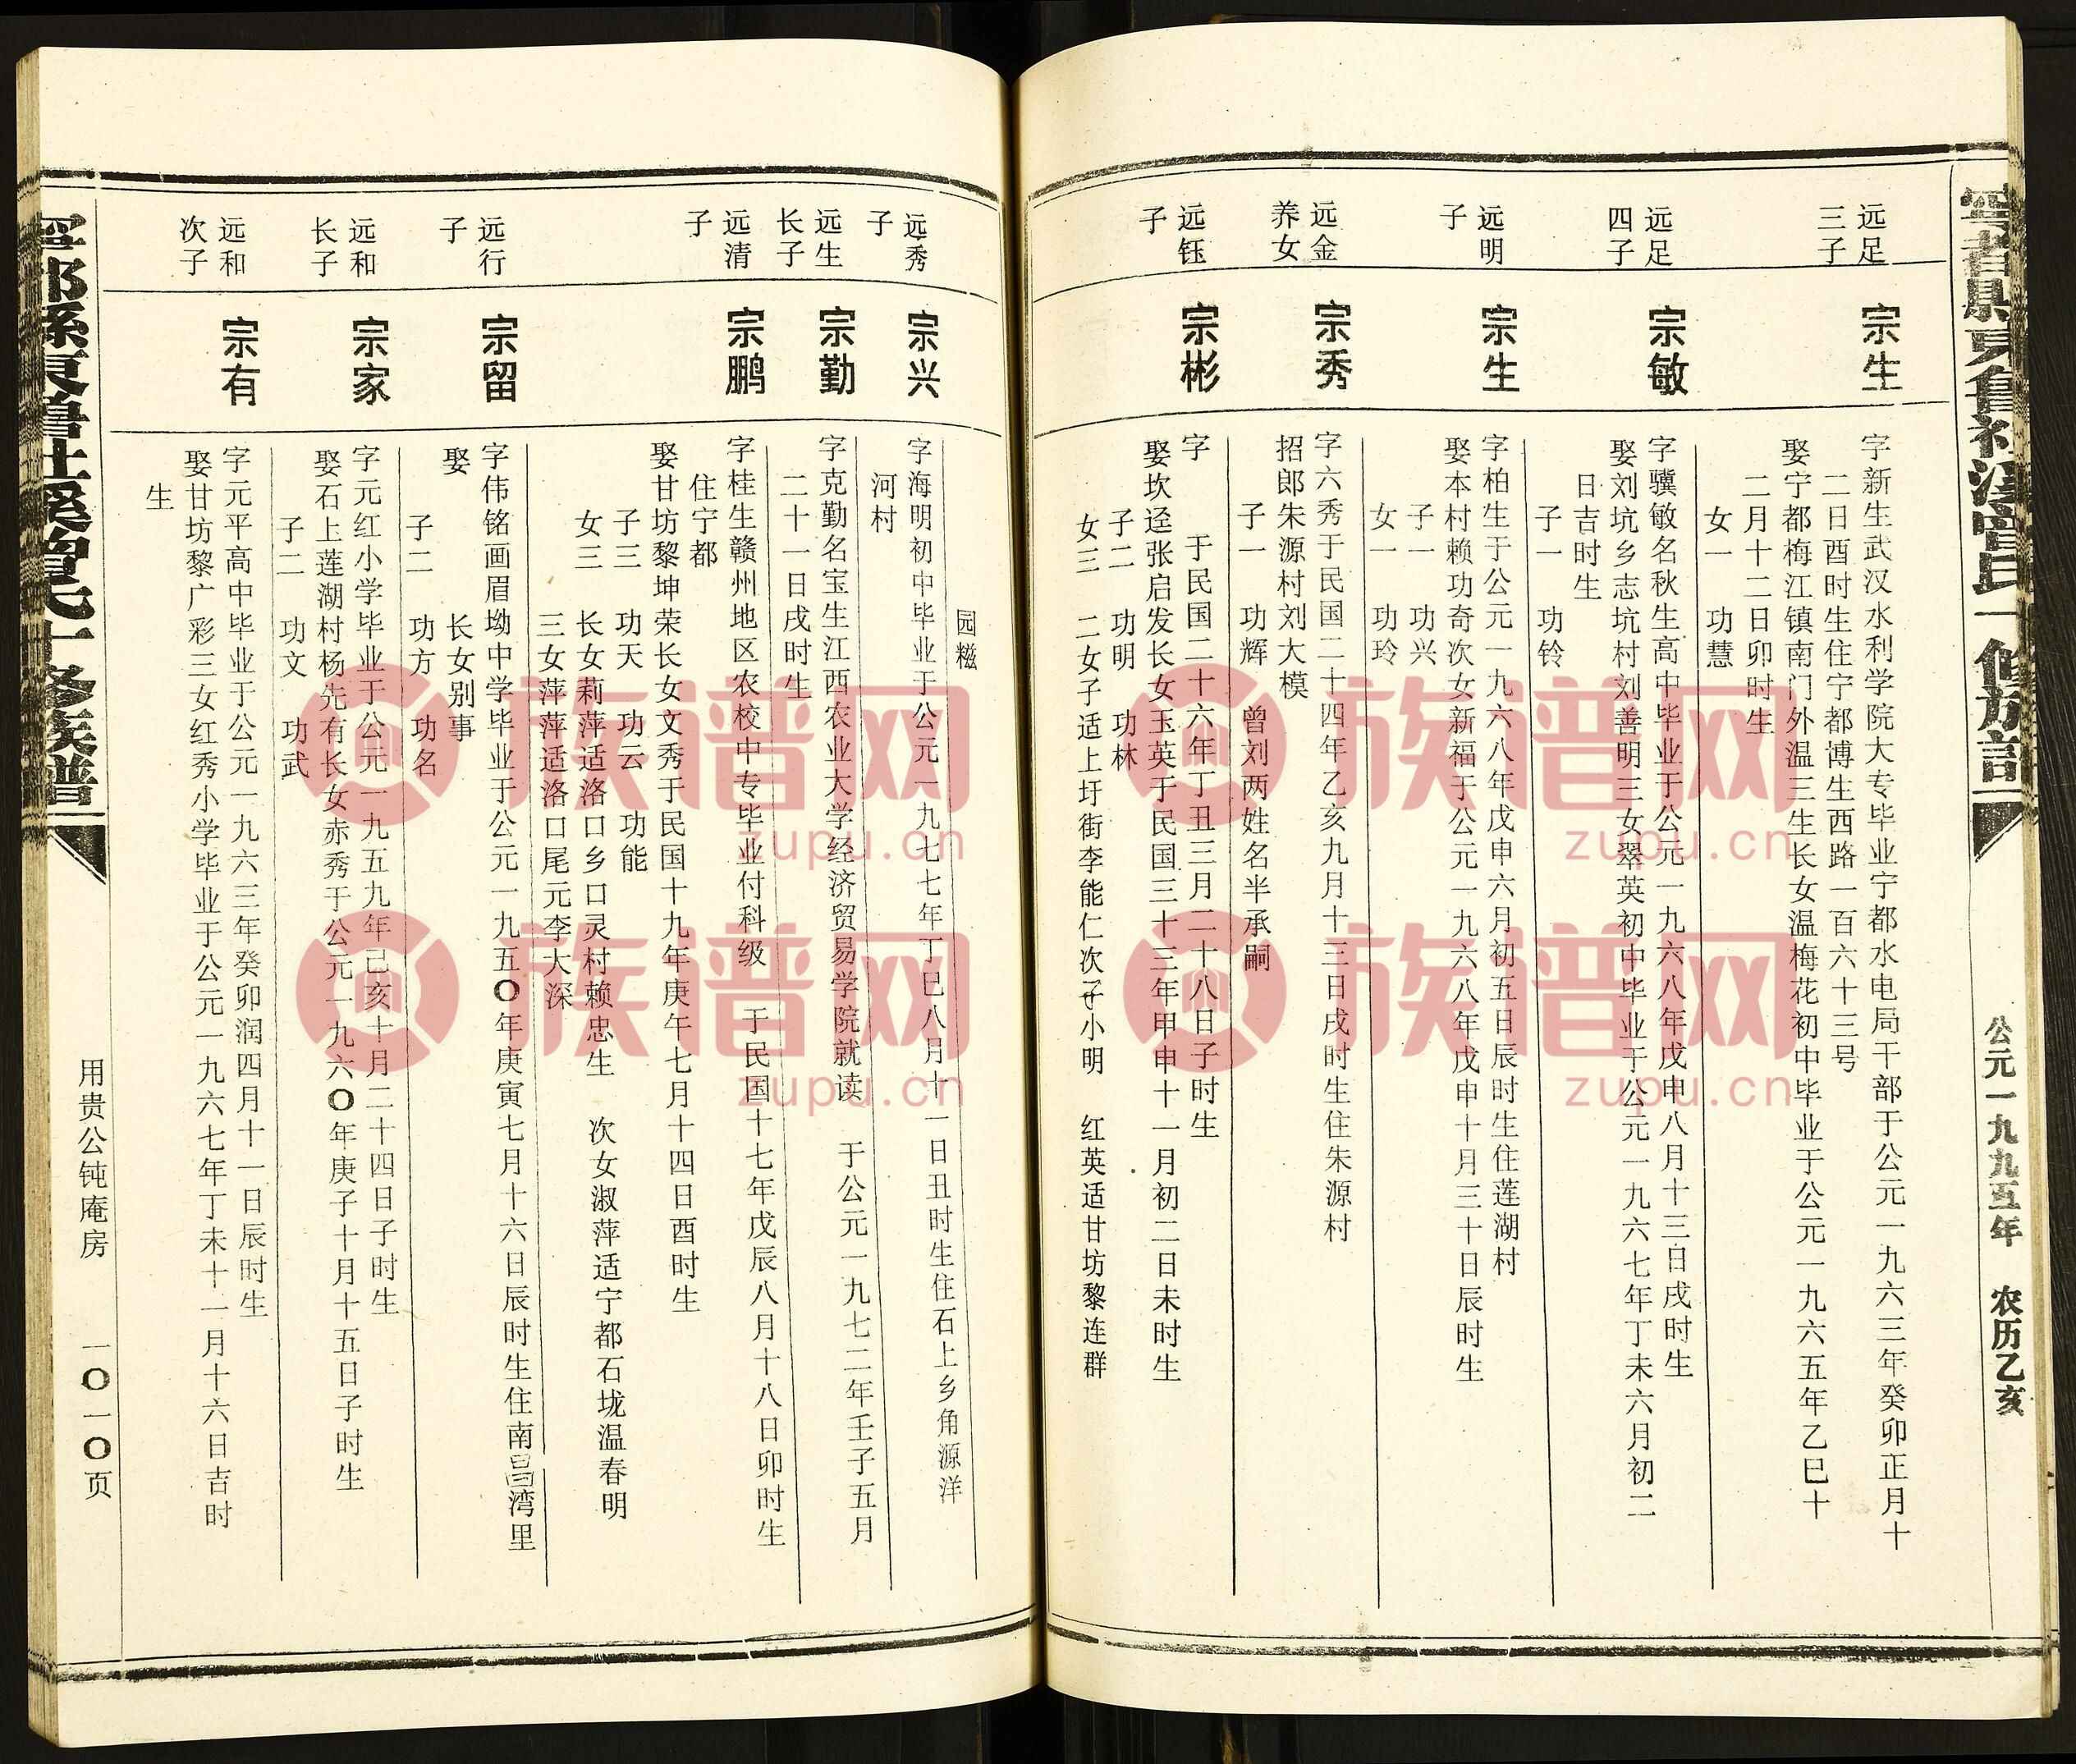 公元一九九五年 农历乙亥
远足
三子
宗生
字新生武汉水利学院大专毕业宁都水电局干部于公元一九六三年癸卯正月十
二日酉时生住宁都博生西路一百六十三号
娶宁都梅江镇南门外温三生长女温梅花初中毕业于公元一九六五年乙巳十
二月十二日卯时生
女一 功慧
远足
四子
宗敏
字骥敏名秋生高中毕业于公元一九六八年戊申八月十三日戌时生
娶刘坑乡志坑村刘善明三女翠英初中毕业于公元一九六七年丁未六月初二
日吉时生
子一 功铃
远明
子
宗生
字柏生于公元一九六八年戊申六月初五日辰时生住莲湖村
娶本村赖功奇次女新福于公元一九六八年戊申十月三十日辰时生
子一 功兴
女一 功玲
远金
养女
宗秀
字六秀于民国二十四年乙亥九月十三日戌时生住朱源村
招郎朱源村刘大模
子一 功辉 曾刘两姓名半承嗣
远钰
子
宗彬
字 于民国二十六年丁丑三月二十八日子时生
娶坎迳张启发长女玉英于民国三十三年甲申十一月初二日未时生
子二 功明 功林
女三 二女子适上圩街李能仁次子小明 红英适甘坊黎连群
园糍
远秀
子
宗兴
字海明初中毕业于公元一九七七年丁巳八月十一日丑时生住石上乡角源洋
河村
远生
长子
宗勤
字克勤名宝生江西农业大学经济贸易学院就读 于公元一九七二年壬子五月
二十一日戌时生
远清
子
宗鹏
字桂生赣州地区农校中专毕业付科级 于民国十七年戊辰八月十八日卯时生
住宁都
娶甘坊黎坤荣长女文秀于民国十九年庚午七月十四日酉时生
子三 功天 功云 功能
女三 长女莉萍适洛口乡口灵村赖忠生 次女淑萍适宁都石垅温春明
三女萍萍适洛口尾元李大深
远行
子
宗留
字伟铭画眉坳中学毕业于公元一九五〇年庚寅七月十六日辰时生住南昌湾里
娶 长女别事
子二 功方 功名
远和
长子
宗家
字元红小学毕业于公元一九五九年己亥十月二十四日子时生
娶石上莲湖村杨先有长女赤秀于公元一九六〇年庚子十月十五日子时生
子二 功文 功武
远和
次子
宗有
字元平高中毕业于公元一九六三年癸卯润四月十一日辰时生
娶甘坊黎广彩三女红秀小学毕业于公元一九六七年丁未十一月十六日吉时
生
用贵公钝庵房 一〇一〇页
族谱网
zupu.cn
族谱网
zupu.cn
族谱网
zupu.cn
族谱网
zupu.cn